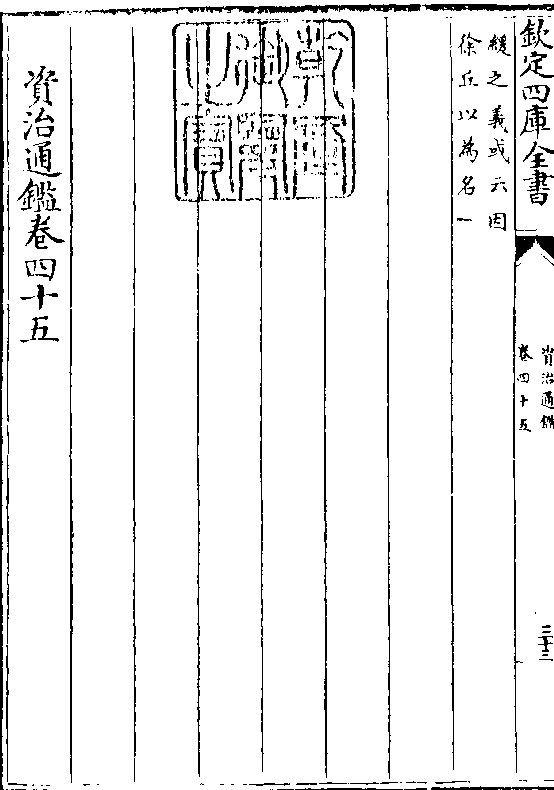 欽定四庫全書
資治通鑑
卷四十五
三十三
緩之義或云因
徐丘以為名一
乾隆
御覽
之寶
資治通鑑卷四十五